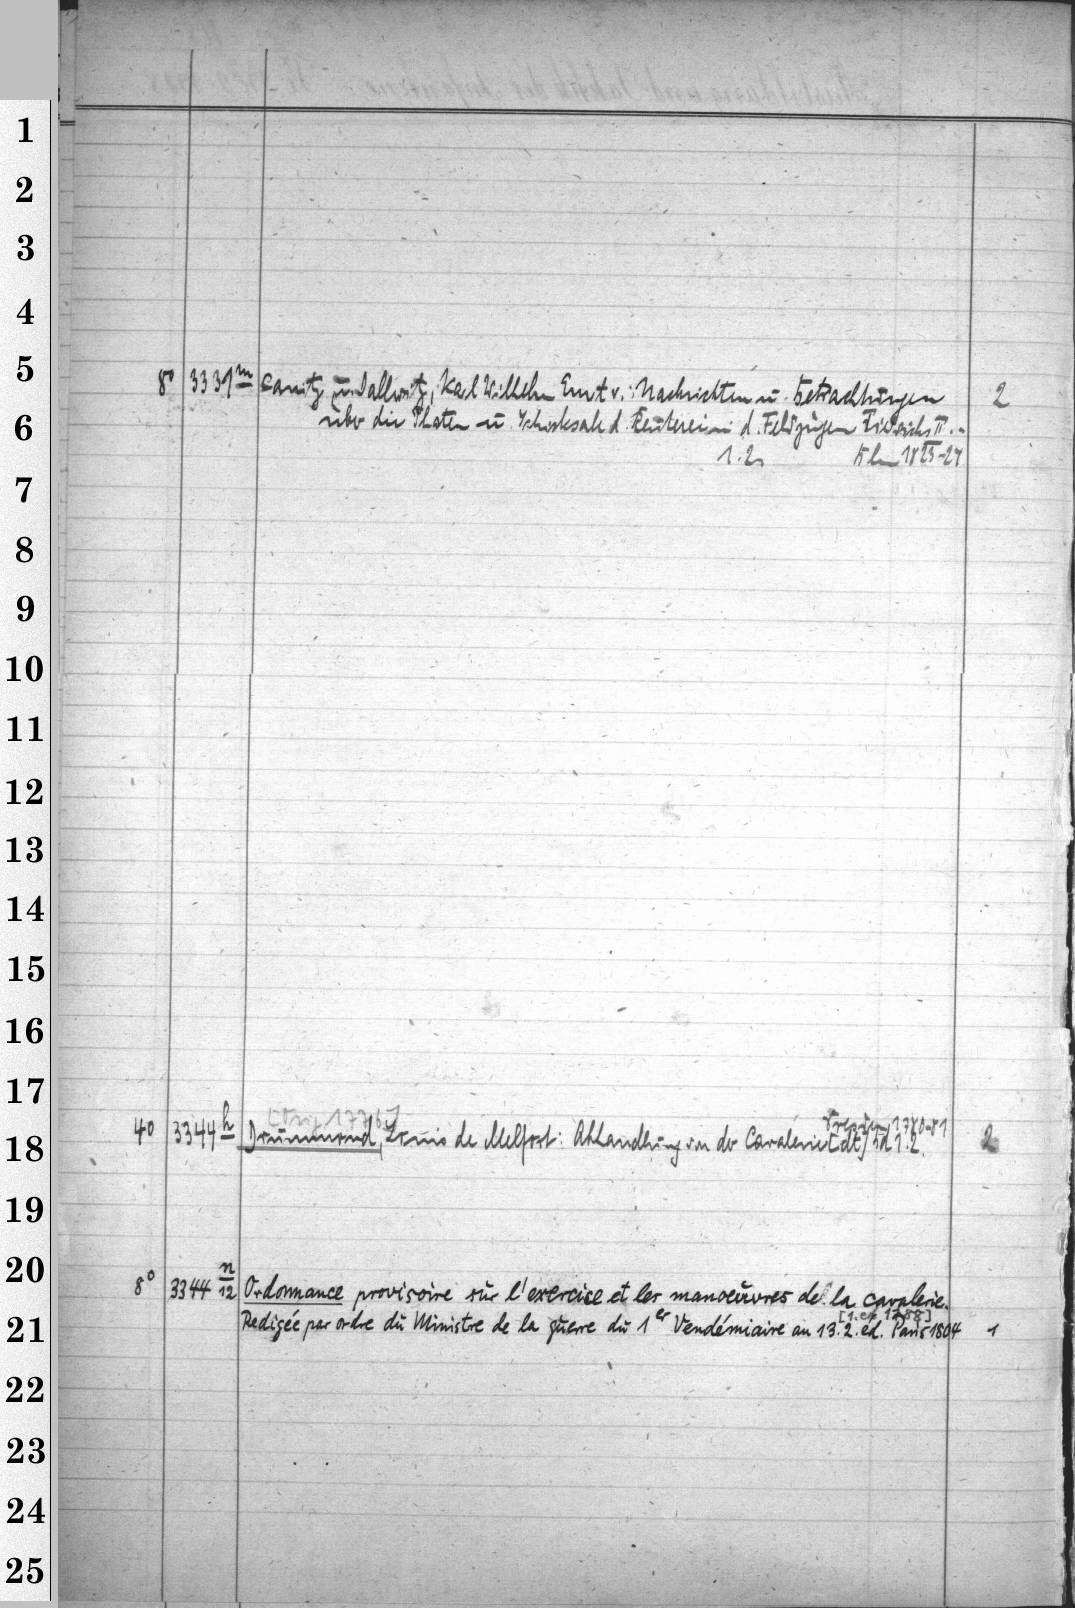 1
2
3
4
5
8° 3331 m Canitz u. Dallwitz, Karl Wilhelm Ernst v.: Nachrichten u. Betrachtungen 2
6
über die Thaten u. Schicksale d. Reuterei in d. Feldzügen Friedrichs II. ..
1. 2. Bln 1823-24
7
8
9
10
11
12
13
14
15
16
17
[Orig. 1776]
Dresden 1780-81
4° 3344 h Drummond, Louis de Melfort: Abhandlung von der Cavalerie [dt] Bd 1.2. 2
18
19
20
8° 3344 n/12 Ordonnance provisoire sur l'exercice et les manoeuvres de la cavalerie.
[1. ex. 1788]
21
Redigée par ordre du Ministre de la guerre du 1er Vendémiaire an 13. 2. éd. Paris 1804 1
22
23
24
25